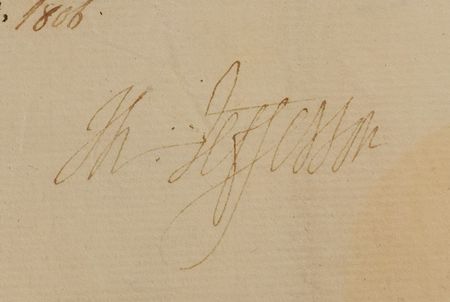 , 1806.
Th: Jefferson